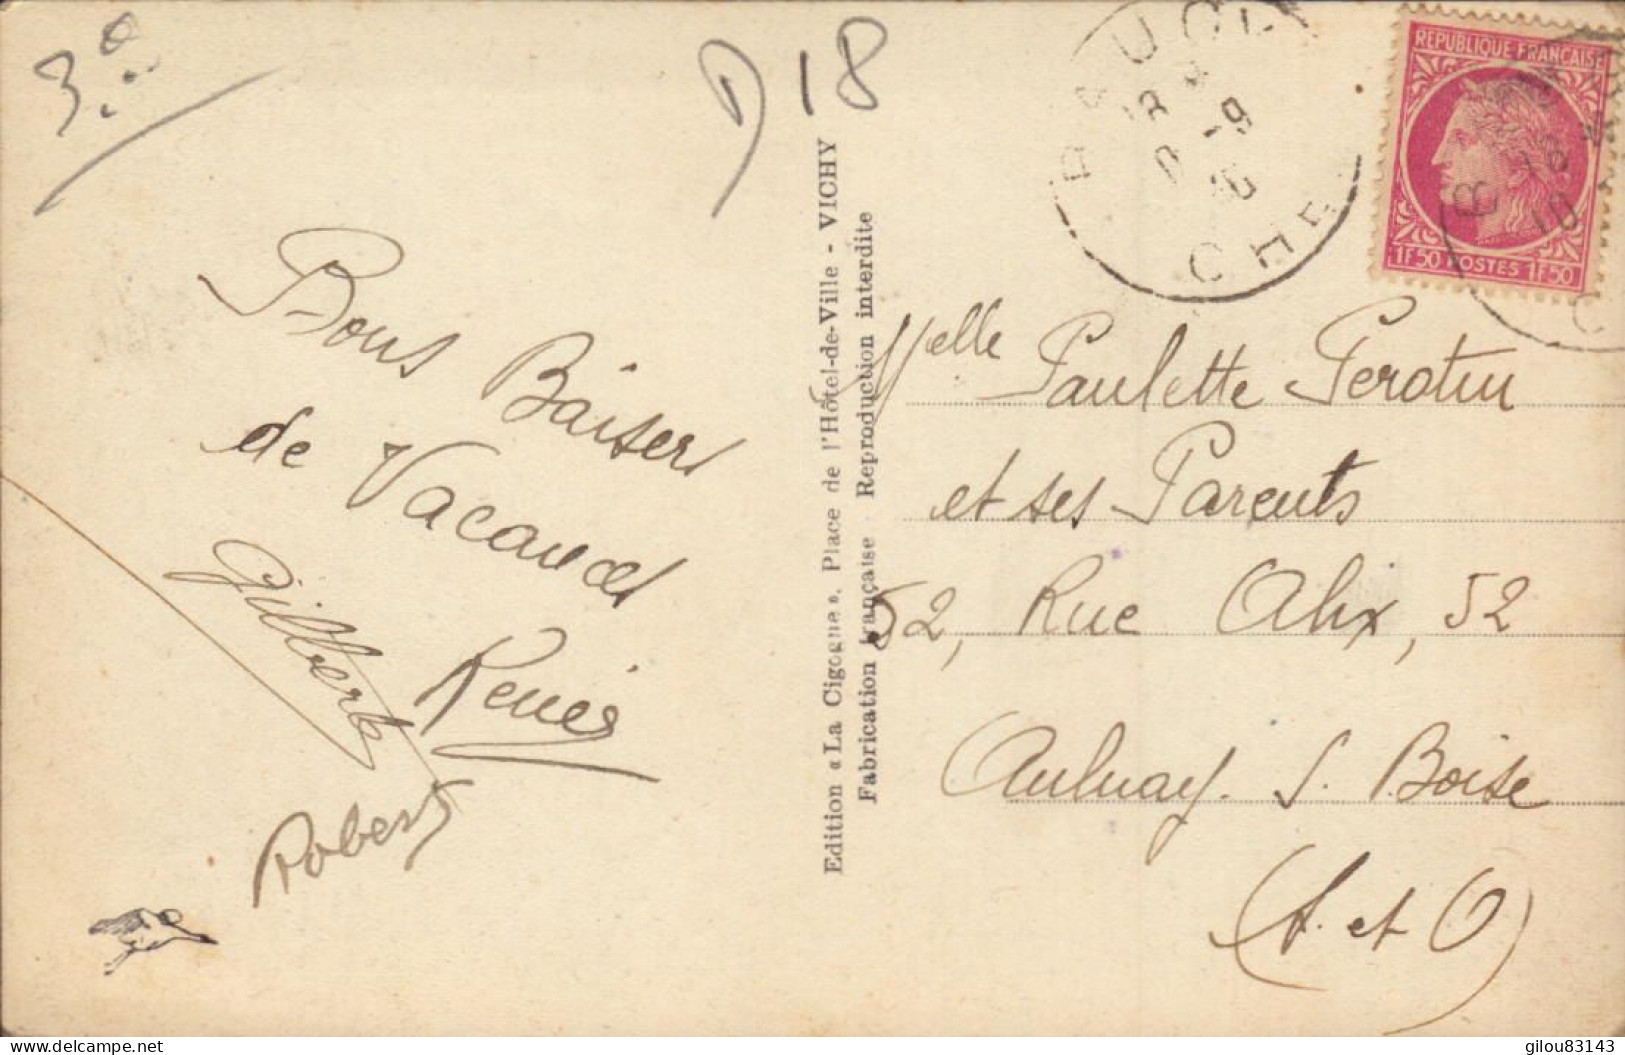 3.
D 18
BAUGY
CHER
REPUBLIQUE FRANÇAISE
1F50 POSTES 1F50
Bons Baisers
de Vacances
Gilberte
Renée
Robert
Edition « La Cigogne », Place de l'Hôtel-de-Ville - VICHY
Fabrication française - Reproduction interdite
Melle Paulette Perotin
et ses Parents
52, Rue Alix, 52
Aulnay. S. Boise
(S. et O)
delcampe.net
gilou83143